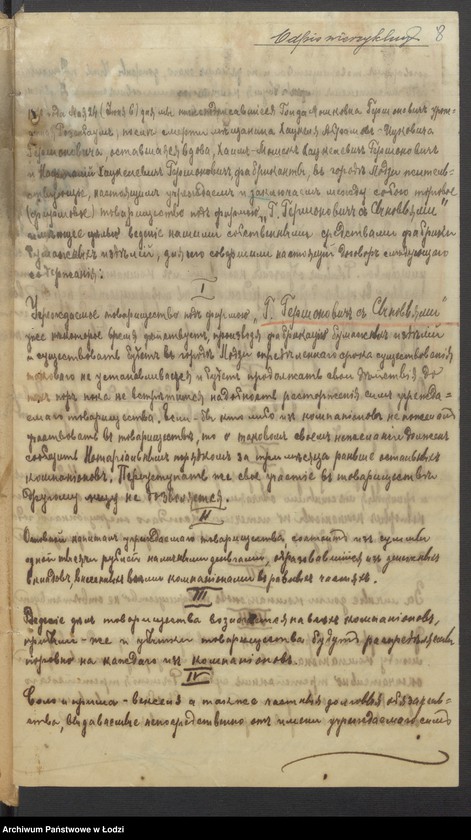 Odpis nierzykluz 8
года Мая 24 (Июня 6) дня мы нижеподписавшиеся Гершонович урож-
после смерти мещанина Ицковича
Гершоновича, оставшаяся вдова, Хаим-Мошек Гершонович
и Гершонович фабриканты, въ городѣ Лодзи жительс-
твующие, настоящимъ учреждаемъ и заключаемъ между собою торговое
(фирмовое) товарищество подъ фирмою „Г. Гершоновичъ съ Сыновьями"
имѣющее цѣлью веденіе нашими собственными средствами фабрики
бумажныхъ издѣлій, для чего совершили настоящій договоръ слѣдующаго
содержанія:
I
Учреждаемое товарищество подъ фирмою „Г. Гершоновичъ съ Сыновьями"
уже некоторое время дѣйствуетъ, производя фабрикацію бумажныхъ издѣлій
и существовать будетъ въ городѣ Лодзи опредѣленнаго срока существованія
такового не устанавливается и будетъ продолжать свои дѣйствія до
тѣхъ поръ пока не встрѣтится надобность расторженія симъ учрежда-
емаго товарищества. Если-бы кто либо изъ компаніоновъ не пожелалъ
участвовать въ товариществѣ, то о таковомъ своемъ нежеланіи долженъ
сообщить Нотаріальнымъ порядкомъ за три мѣсяца раньше остальнымъ
компаніонамъ. Переуступать же свое участіе въ товариществѣ
другому лицу не дозволяется.
II
Основной капиталъ учреждаемаго товарищества состоитъ изъ суммы
одной тысячи рублей наличными деньгами, образовавшійся изъ денежныхъ
вкладовъ внесенныхъ всѣми компаніонами въ равныхъ частяхъ.
III
Веденіе дѣлъ товарищества возлагается на всѣхъ компаніоновъ,
прибыли-же и убытки товарищества будутъ распредѣляемы
поровну на каждаго изъ компаніоновъ.
IV
Соло и прима-векселя а также частныя долговыя обязатель-
ства, выдаваемые непосредственно отъ имени учреждаемаго симъ
Archiwum Państwowe w Łodzi